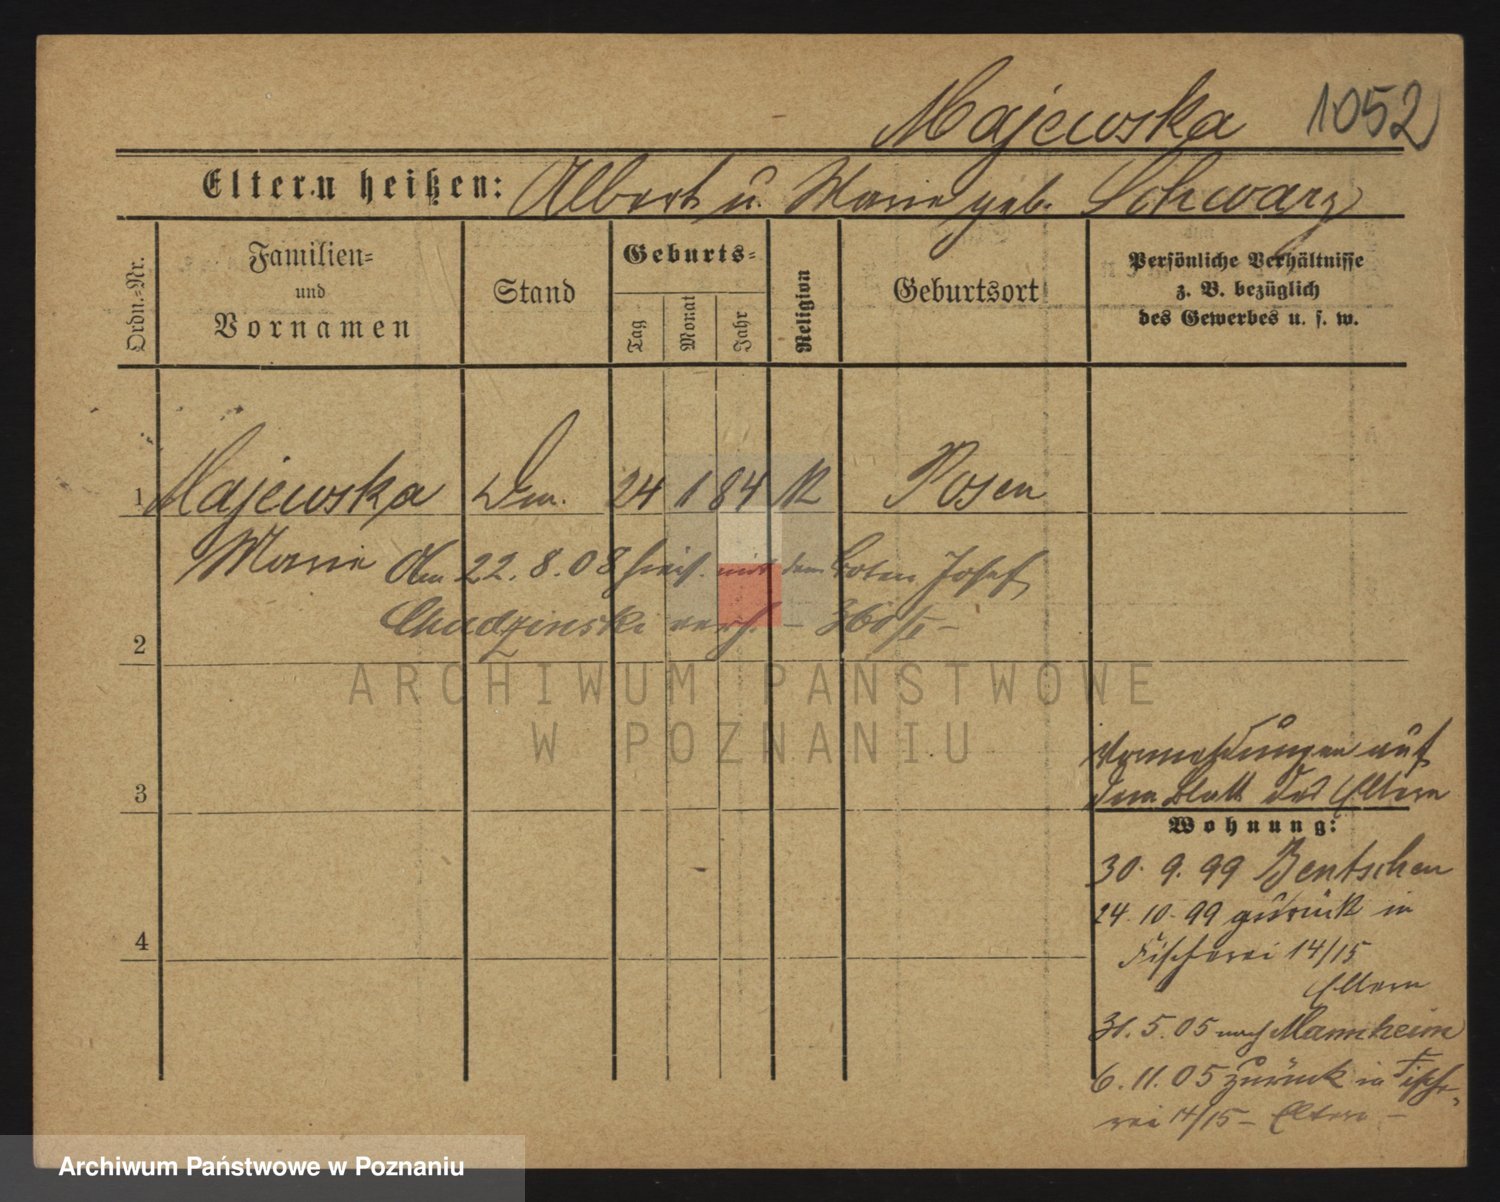 Majewska 1052
Eltern heißen: Albert u. Marie geb. Schwarz
Ordn.-Nr.
Familien-
und
Vornamen
Stand
Geburts-
Tag
Monat
Jahr
Religion
Geburtsort
Persönliche Verhältnisse
z. B. bezüglich
des Gewerbes u. s. w.
1 Majewska 24 1 84 K Posen
Marie Am 22.8.08 hies. mit dem Boten Josef
Chudzinski verh. –
2
ARCHIWUM PAŃSTWOWE
W POZNANIU
Vermerkungen auf
3 dem Blatt des Eltern
Wohnung:
30. 9. 99 Bentschen
24. 10. 99 zurück in
4 Fischerei 14/15
Eltern
31. 5. 05 nach Mannheim
6. 11. 05 zurück in Fische-
rei 14/15 – Eltern –
Archiwum Państwowe w Poznaniu